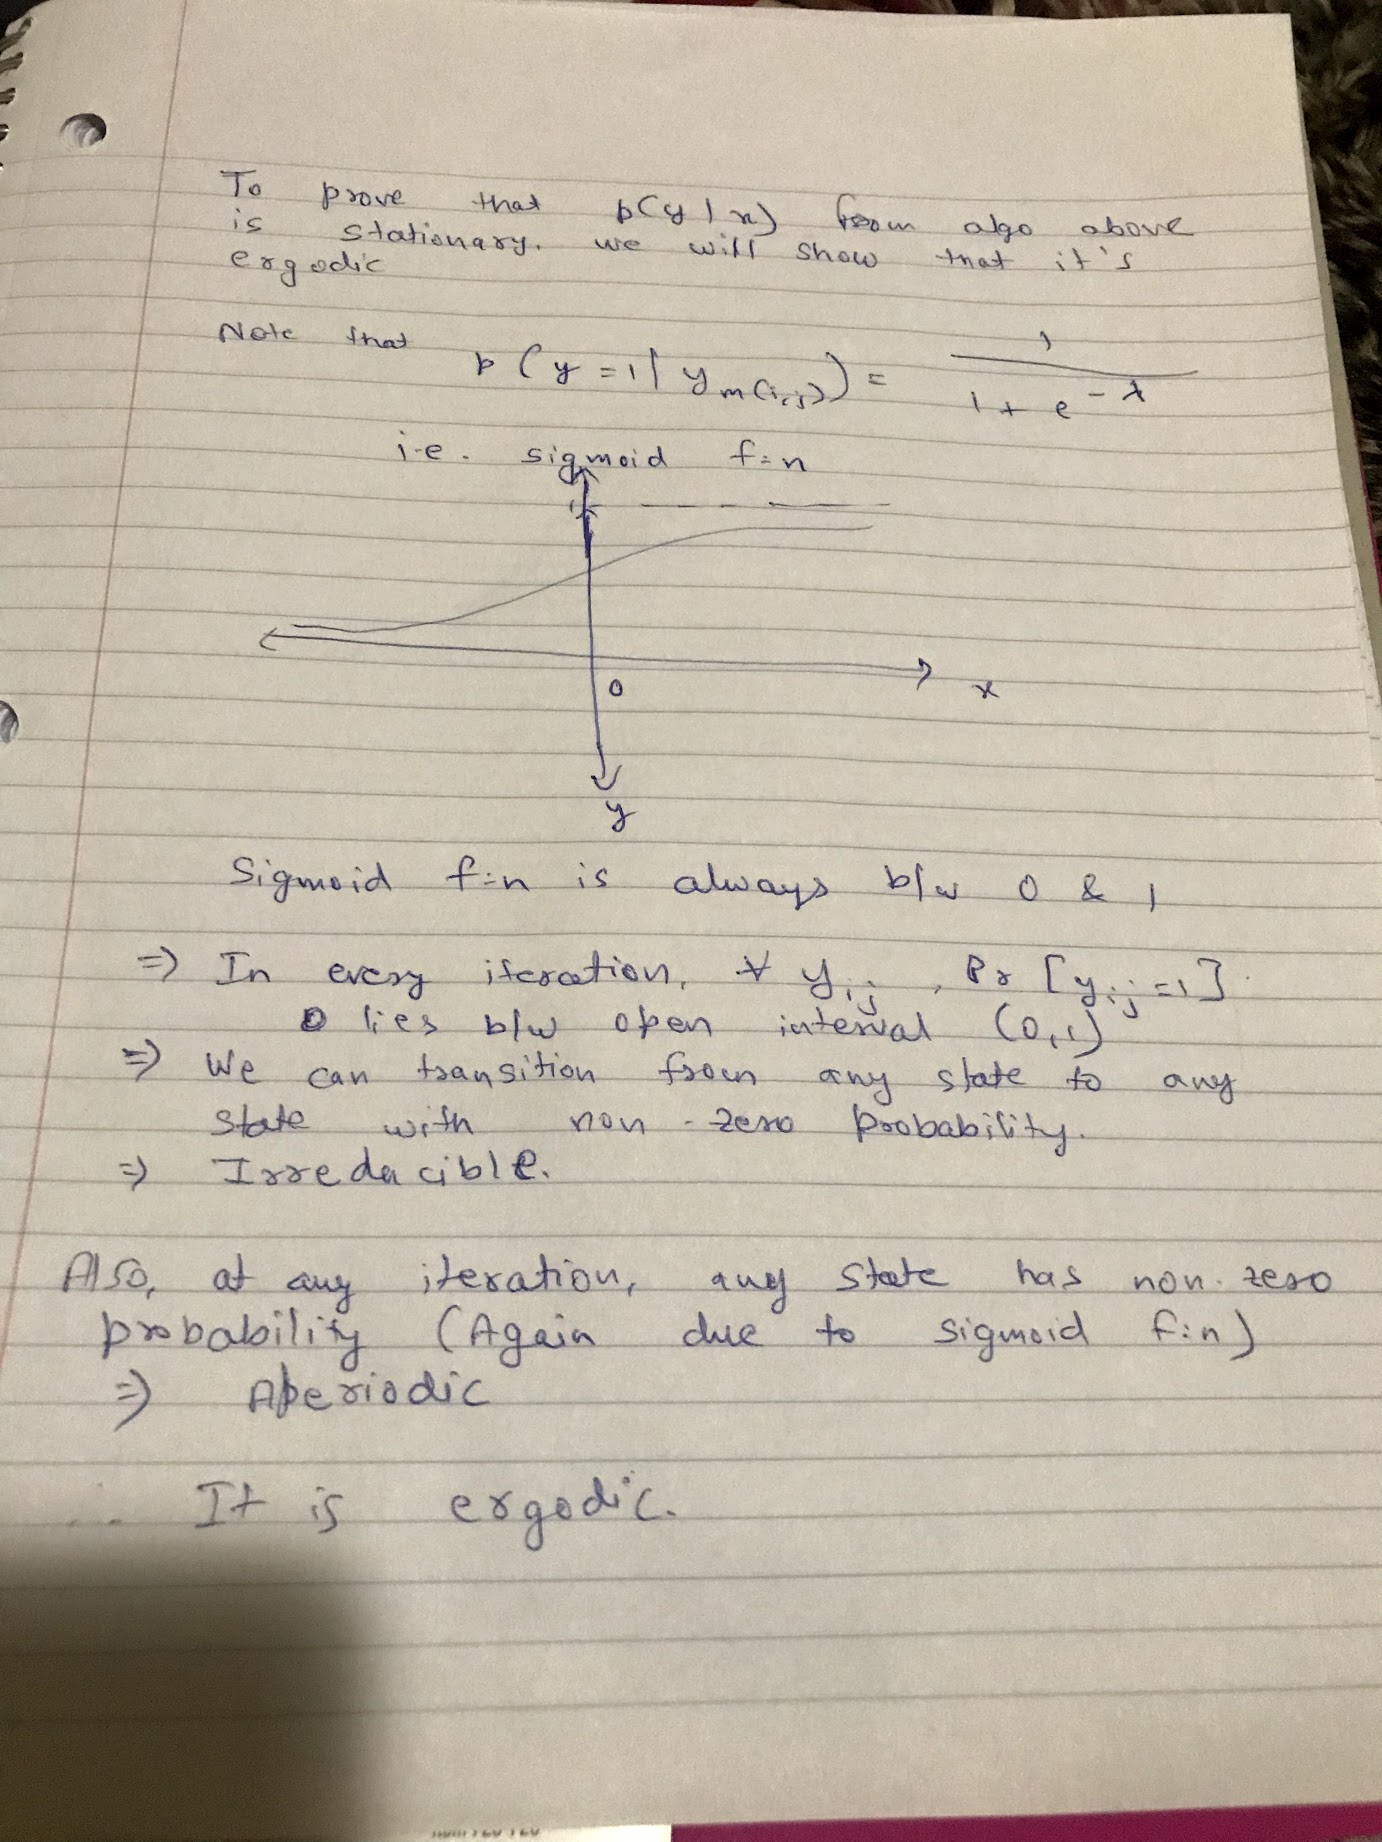 To prove that p(y|x) from algo above
is stationary. we will show that it's
ergodic
Note that p(y=1|y_m(i,j)) = 1 / (1 + e^-x)
i.e. sigmoid f:n
1
0
x
y
Sigmoid f:n is always b/w 0 & 1
=> In every iteration, ∀ y_ij, Pr[y_ij=1]
lies b/w open interval (0,1)
=> We can transition from any state to any
state with non-zero probability.
=> Irreducible.
Also, at any iteration, any state has non-zero
probability (Again due to sigmoid f:n)
=> Aperiodic
∴ It is ergodic.